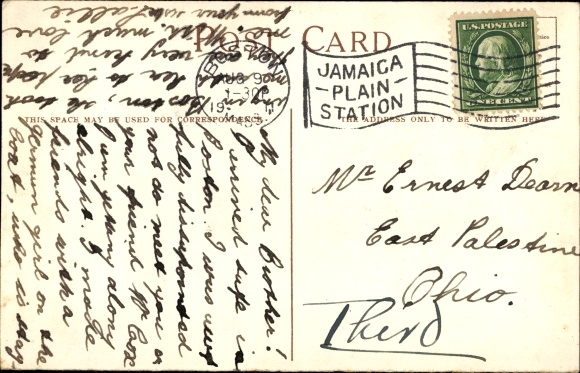 POST CARD
THIS SPACE MAY BE USED FOR CORRESPONDENCE
THE ADDRESS ONLY TO BE WRITTEN HERE
U.S. POSTAGE
ONE CENT
JAMAICA
PLAIN
STATION
BOSTON
1-30P
MASS
Mr Ernest Dearn
East Palestine
Ohio.
Third
My dear Brother!
I arrived safe in
Boston. I was very
fully disappointed
not do meet you or
your friend Mr Cox
I am getting along
alright. I made
friends with a
German girl on the
boat, who is
Boston, she took
me to her
very kind to
me. much love
from your sister Callie